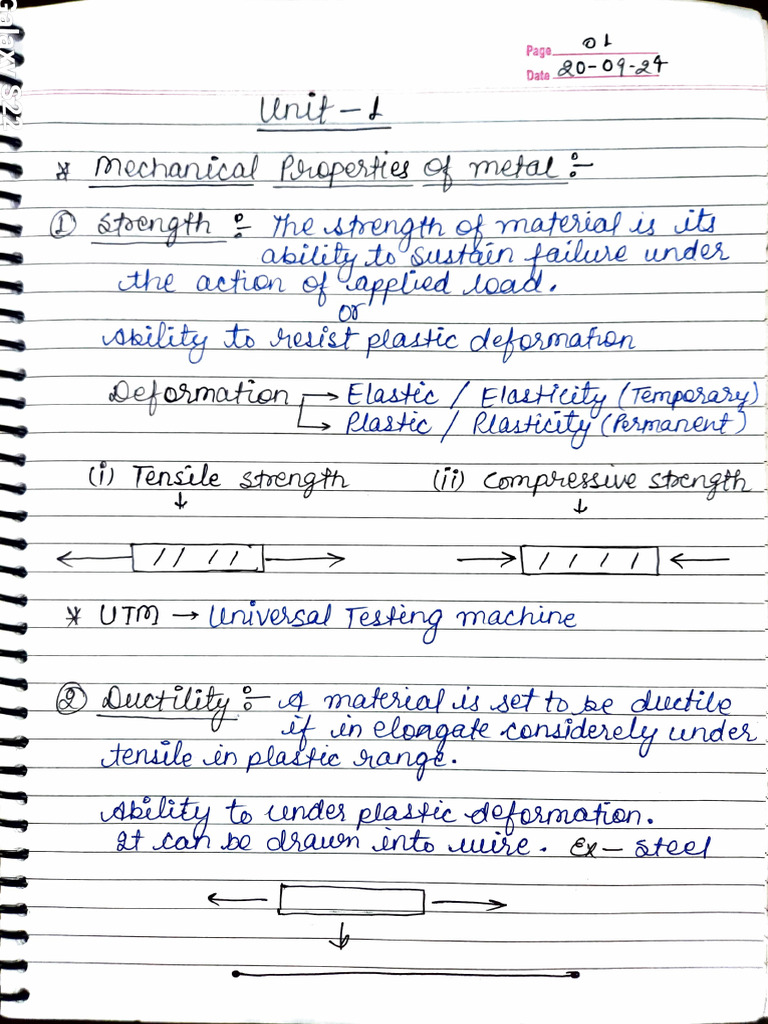 Galaxy S22
Page 01
Date 20-09-24
Unit - 1
* Mechanical Properties of metal :-
① Strength :- The strength of material is its
ability to sustain failure under
the action of applied load.
or
Ability to resist plastic deformation
Deformation → Elastic / Elasticity (Temporary)
→ Plastic / Plasticity (Permanent)
(i) Tensile strength (ii) Compressive strength
* UTM → Universal Testing machine
② Ductility :- A material is set to be ductile
if in elongate considerely under
tensile in plastic range.
Ability to under plastic deformation.
It can be drawn into wire. Ex - Steel